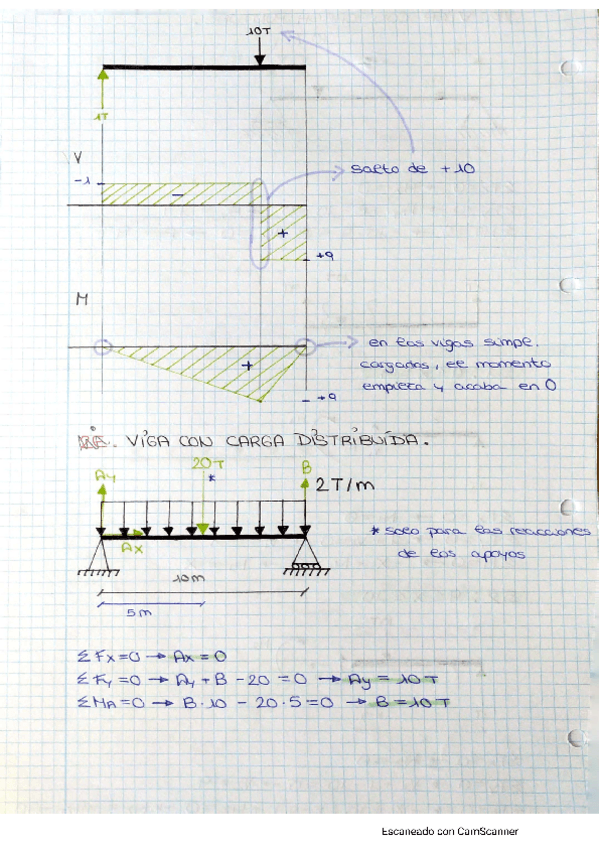 10T
1T
V
-1
-
salto de +10
+
+9
M
en las vigas simple.
cargadas, el momento
empieza y acaba en 0
+
+9
VIGA CON CARGA DISTRIBUÍDA.
Ay
20T
*
B
2T/m
Ax
* solo para las reacciones
de los apoyos
10m
5m
ΣFx=0 → Ax=0
ΣFy=0 → Ay+B-20=0 → Ay=10T
ΣMA=0 → B·10-20·5=0 → B=10T
Escaneado con CamScanner